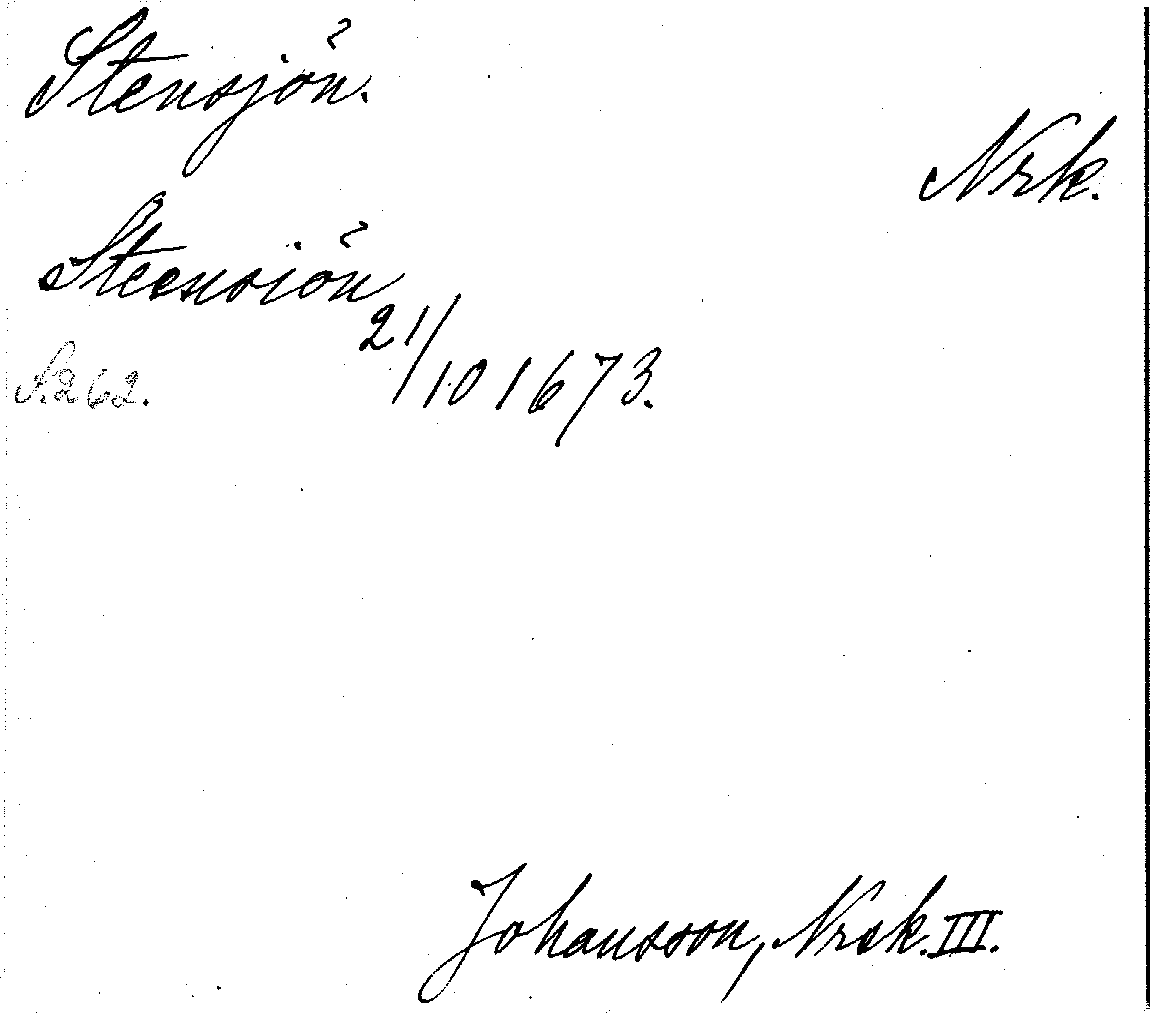 Stensjön.
Nrk.
Steensiön
21/10 1673.
S. 262.
Johansson, Nrsk. III.